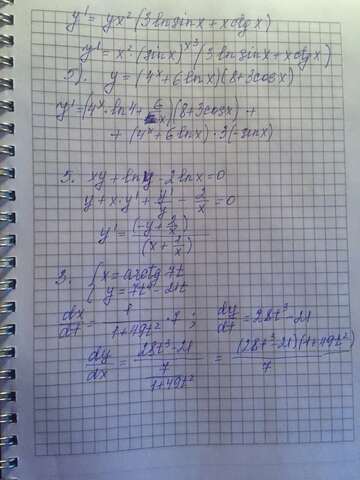 y' = yx²(3lnsinx + xctgx)
y' = x²(sinx)^x³(3lnsinx + xctgx)
2). y = (4^x + 6lnx)(8+3cosx)
y' = (4^x · ln4 + 6/x)(8+3cosx) +
+ (4^x + 6lnx) · 3(-sinx)
5. xy + lny - 2lnx = 0
y + x·y' + y'/y - 2/x = 0
y' = (-y + 2/x) / (x + 1/x)
3. { x = arctg 7t
y = 7t⁴ - 21t
dx/dt = 1/(1+49t²) · 7 ; dy/dt = 28t³ - 21
dy/dx = (28t³ - 21) / (7/(1+49t²)) = (28t³ - 21)(1+49t²) / 7